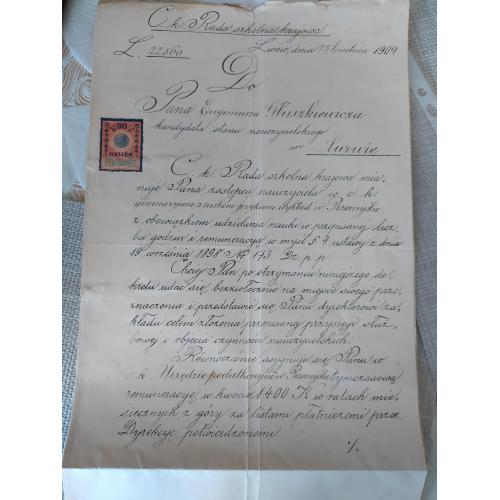 C. k. Rada szkolna krajowa
L. 22560
Lwów, dnia 25 kwietnia 1909
Do
Pana Eugeniusza Głuszkiewicza
kandydata stanu nauczycielskiego
we Lwowie
30
HELLER
C. k. Rada szkolna krajowa mia-
nuje Pana zastępcą nauczyciela w c. k.
gimnazyum z ruskim językiem wykład. w Przemyślu
z obowiązkiem udzielania nauki w przepisanej licz-
bie godzin i remuneracyą w myśl § 4 ustawy z dnia
19 września 1898 Nr 173 Dz. p. p.
Chciej Pan po otrzymaniu niniejszego de-
kretu udać się bezzwłocznie na miejsce swego prze-
znaczenia i przedstawić się Panu dyrektorowi za-
kładu celem złożenia przepisanej przysięgi służ-
bowej i objęcia czynności nauczycielskich.
Równocześnie asygnuje się Panu w
c. k. Urzędzie podatkowym w Przemyślu tymczasową
remuneracyę w kwocie 1400 K w ratach mie-
sięcznych z góry za listami płatniczemi przez
Dyrekcyę potwierdzonemi.
·/.